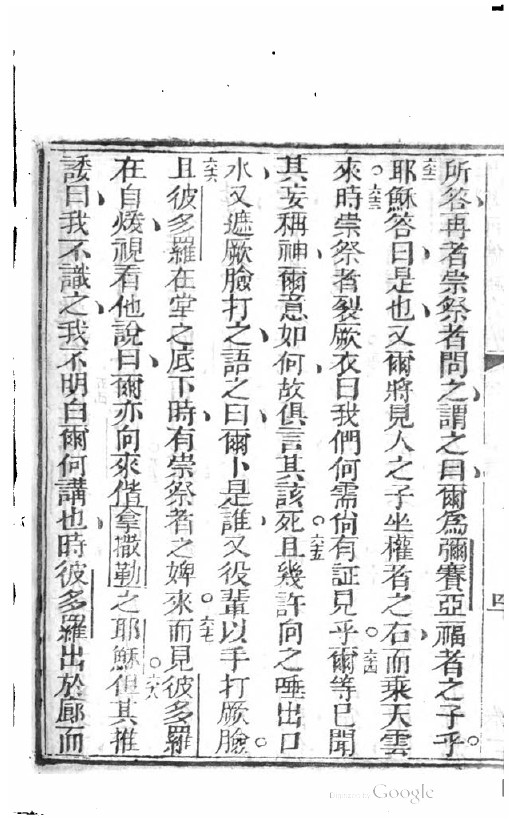 所答再者崇祭者問之謂之曰爾爲彌賽亞福者之子乎。
六二耶穌答曰是也又爾將見人之子坐權者之右而乘天雲
來。六三時崇祭者裂厥衣曰我們何需何有証見乎。六四爾等已聞
其妄稱神爾意如何故俱言其該死。六五且幾許向之唾出口
水又遮厥臉打之語之曰爾卜是誰又役輩以手打厥臉。
六六且彼多羅在堂之底下時有崇祭者之婢來。六七而見彼多羅
在自煖視看他說曰爾亦向來偕拿撒勒之耶穌。六八但其推
諉曰我不識之我不明白爾何講也時彼多羅出於廊而
四
Digitized by Google